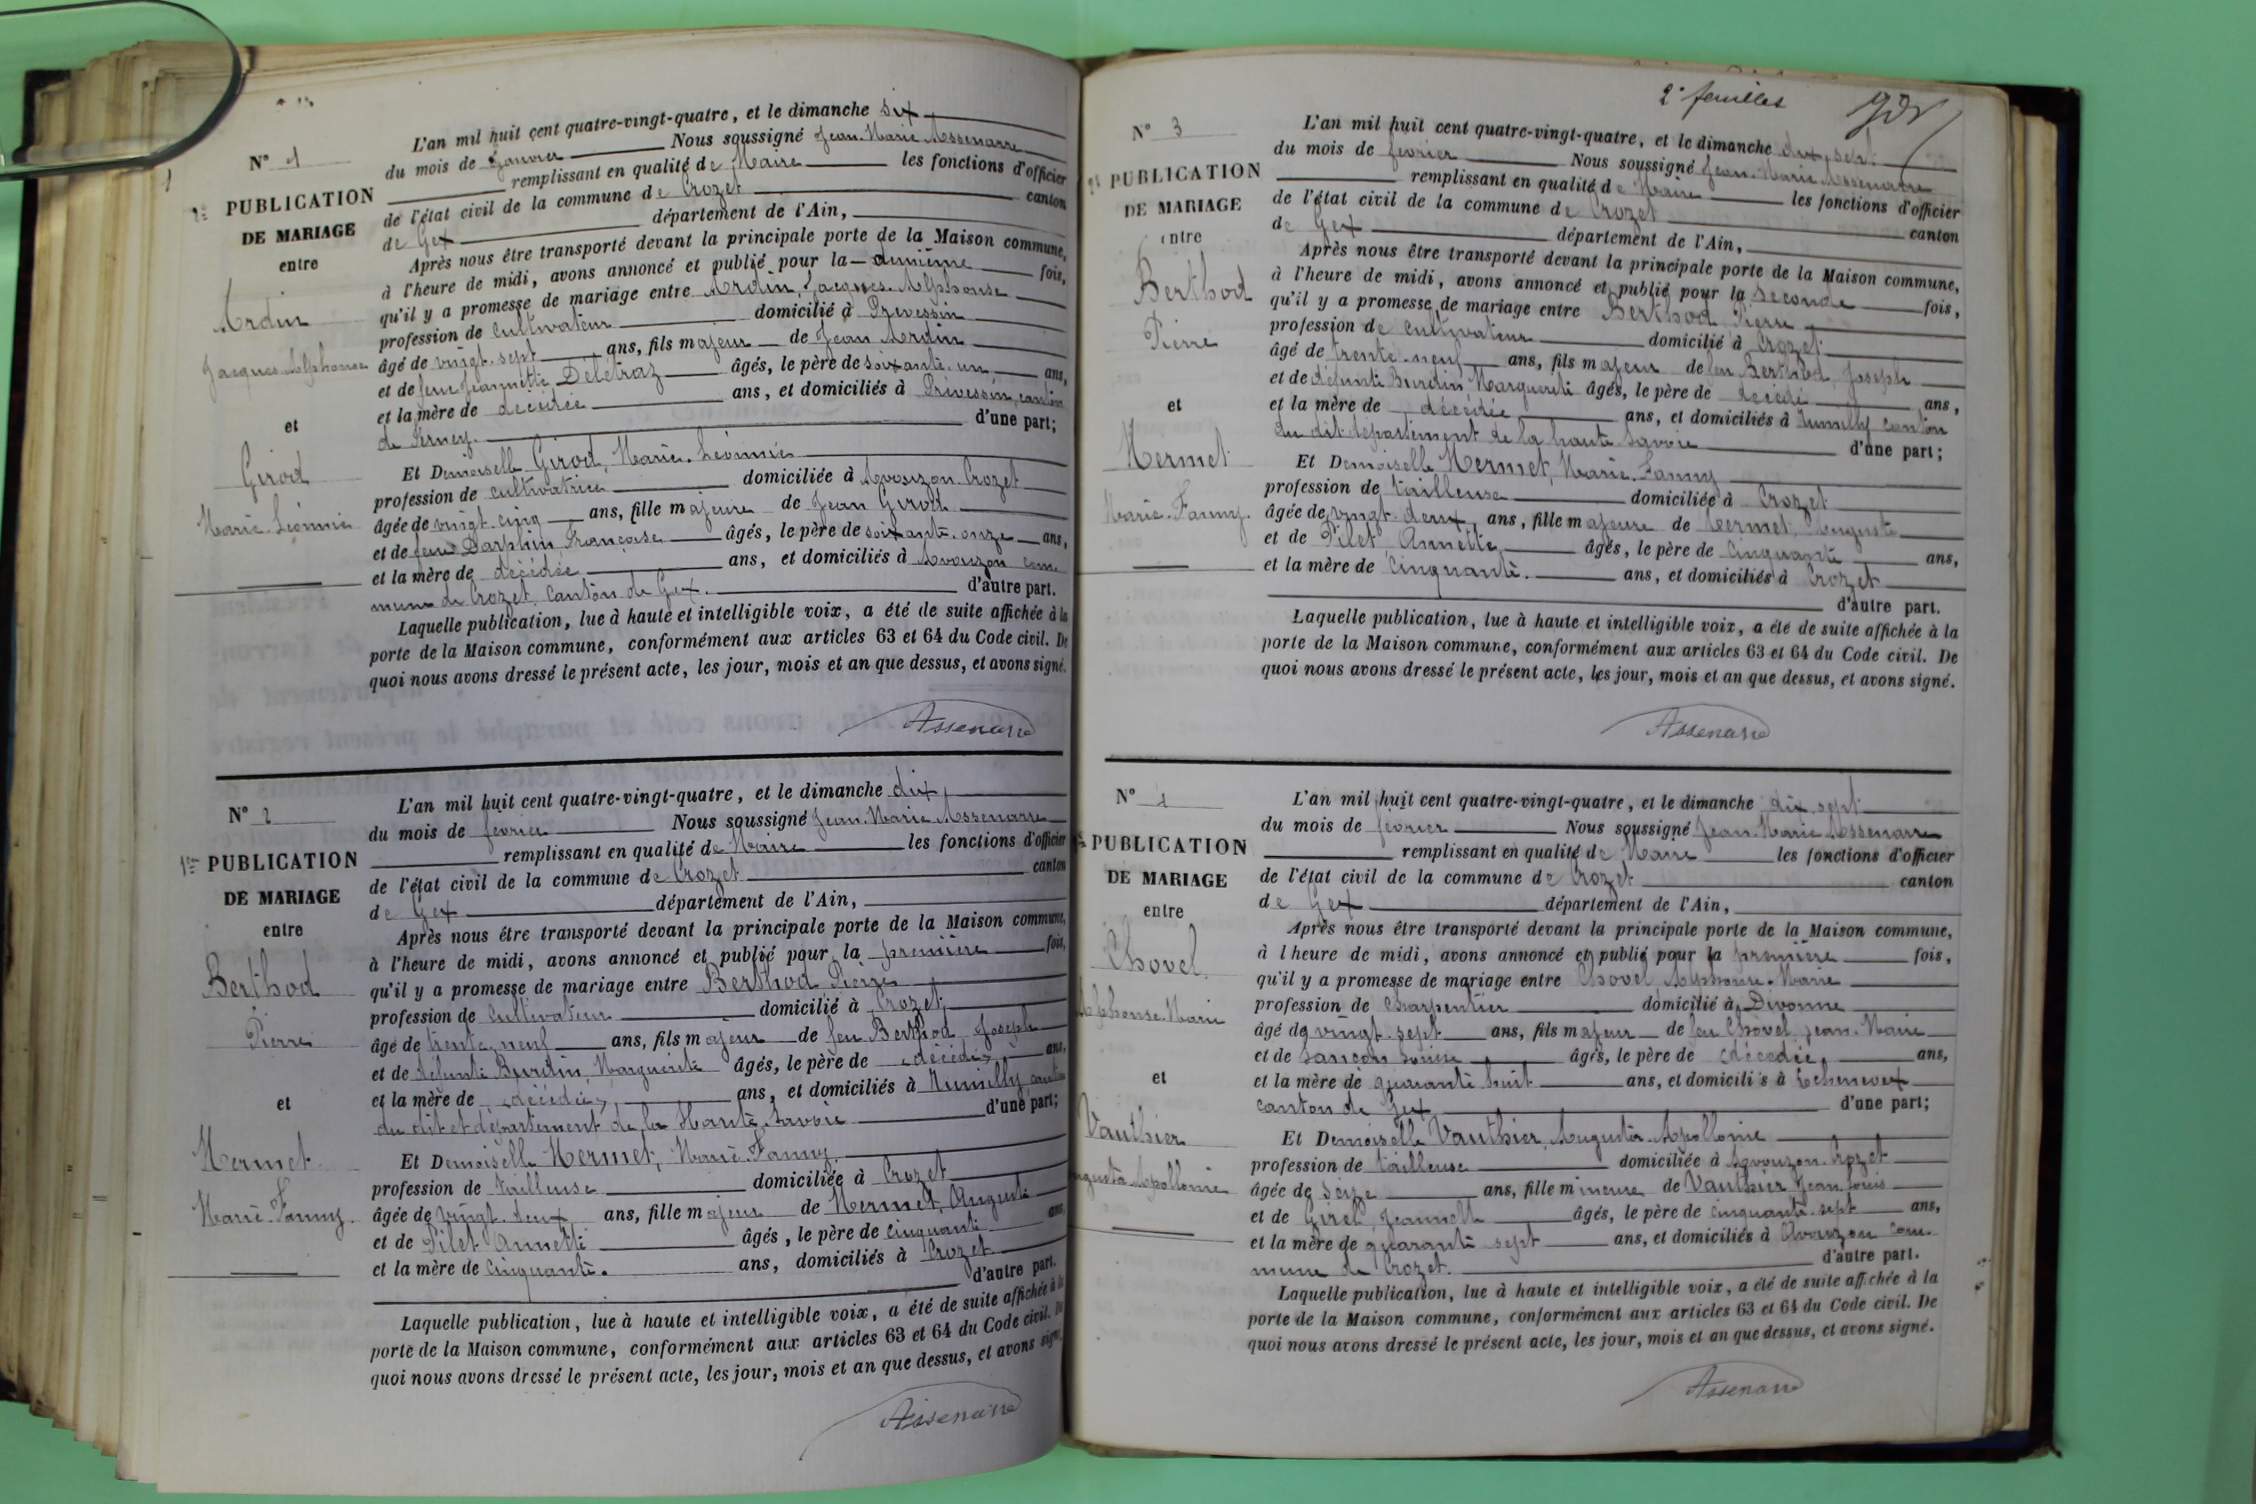 N° 1
1re PUBLICATION
DE MARIAGE
entre
Ardin
Jacques Alphonse
et
Girod
Marie Léonnie
L'an mil huit cent quatre-vingt-quatre, et le dimanche six
du mois de Janvier Nous soussigné Jean-Marie Assenarre
remplissant en qualité de Maire les fonctions d'officier
de l'état civil de la commune de Crozet canton
de Gex département de l'Ain,
Après nous être transporté devant la principale porte de la Maison commune,
à l'heure de midi, avons annoncé et publié pour la fois,
qu'il y a promesse de mariage entre Ardin, Jacques-Alphonse
profession de cultivateur domicilié à Prevessin
âgé de vingt-sept ans, fils majeur de Jean Ardin
et de feue Jeannette Délétraz âgés, le père de soixante-un ans,
et la mère de décédée ans, et domiciliés à Prévessin, canton
de Ferney. d'une part;
Et Demoiselle Girod, Marie-Léonnie
profession de cultivatrice domiciliée à Avouzon-Crozet
âgée de vingt-cinq ans, fille majeure de Jean Girod
et de feue Darphin Françoise âgés, le père de soixante-onze ans,
et la mère de décédée ans, et domiciliés à Avouzon com-
mune de Crozet, canton de Gex. d'autre part.
Laquelle publication, lue à haute et intelligible voix, a été de suite affichée à la
porte de la Maison commune, conformément aux articles 63 et 64 du Code civil. De
quoi nous avons dressé le présent acte, les jour, mois et an que dessus, et avons signé.
Assenarre
N° 2
1re PUBLICATION
DE MARIAGE
entre
Berthod
Pierre
et
Mermet
Marie-Fanny.
L'an mil huit cent quatre-vingt-quatre, et le dimanche dix
du mois de février Nous soussigné Jean-Marie Assenarre
remplissant en qualité de Maire les fonctions d'officier
de l'état civil de la commune de Crozet canton
de Gex département de l'Ain,
Après nous être transporté devant la principale porte de la Maison commune,
à l'heure de midi, avons annoncé et publié pour la première fois,
qu'il y a promesse de mariage entre Berthod Pierre
profession de cultivateur domicilié à Crozet
âgé de trente-neuf ans, fils majeur de feu Berthod Joseph
et de défunte Burdin Marguerite âgés, le père de décédé, ans,
et la mère de décédée, ans, et domiciliés à Rumilly canton
du dit et département de la Haute-Savoie d'une part;
Et Demoiselle Mermet, Marie-Fanny.
profession de tailleuse domiciliée à Crozet
âgée de vingt-deux ans, fille majeur de Mermet, Auguste
et de Pilet Annette âgés, le père de cinquante ans,
et la mère de cinquante. ans, domiciliés à Crozet
d'autre part.
Laquelle publication, lue à haute et intelligible voix, a été de suite affichée à la
porte de la Maison commune, conformément aux articles 63 et 64 du Code civil. De
quoi nous avons dressé le présent acte, les jour, mois et an que dessus, et avons signé.
Assenarre
2e feuilles
N° 3
2e PUBLICATION
DE MARIAGE
entre
Berthod
Pierre
et
Mermet
Marie-Fanny.
L'an mil huit cent quatre-vingt-quatre, et le dimanche dix-sept
du mois de février Nous soussigné Jean-Marie Assenarre
remplissant en qualité de Maire les fonctions d'officier
de l'état civil de la commune de Crozet canton
de Gex département de l'Ain,
Après nous être transporté devant la principale porte de la Maison commune,
à l'heure de midi, avons annoncé et publié pour la seconde fois,
qu'il y a promesse de mariage entre Berthod Pierre
profession de cultivateur domicilié à Crozet
âgé de trente-neuf ans, fils majeur de feu Berthod, Joseph
et de défunte Burdin Marguerite âgés, le père de décédé ans,
et la mère de décédée ans, et domiciliés à Rumilly canton
du dit département de la haute Savoie d'une part;
Et Demoiselle Mermet, Marie-Fanny
profession de tailleuse domiciliée à Crozet
âgée de vingt-deux ans, fille majeure de Mermet, Auguste
et de Pilet Annette, âgés, le père de cinquante ans,
et la mère de cinquante. ans, et domiciliés à Crozet
d'autre part.
Laquelle publication, lue à haute et intelligible voix, a été de suite affichée à la
porte de la Maison commune, conformément aux articles 63 et 64 du Code civil. De
quoi nous avons dressé le présent acte, les jour, mois et an que dessus, et avons signé.
Assenarre
N°
PUBLICATION
DE MARIAGE
entre
Chovel
Alphonse-Marie
et
Vauthier
Augusta Apollonie
L'an mil huit cent quatre-vingt-quatre, et le dimanche dix-sept
du mois de février Nous soussigné Jean-Marie Assenarre
remplissant en qualité de Maire les fonctions d'officier
de l'état civil de la commune de Crozet canton
de Gex département de l'Ain,
Après nous être transporté devant la principale porte de la Maison commune,
à l'heure de midi, avons annoncé et publié pour la première fois,
qu'il y a promesse de mariage entre Chovel Alphonse-Marie
profession de Charpentier domicilié à Divonne
âgé de vingt-sept ans, fils majeur de feu Chovel, Jean-Marie
et de Sançon Louise, âgés, le père de décédée, ans,
et la mère de quarante-huit ans, et domiciliés à Echenevex
canton de Gex d'une part;
Et Demoiselle Vauthier, Augusta-Apollonie
profession de tailleuse domiciliée à Avouzon-Crozet
âgée de seize ans, fille mineure de Vauthier Jean-Louis
et de Girel, Jeannette âgés, le père de cinquante-sept ans,
et la mère de quarante-sept ans, et domiciliés à Avouzon com-
mune de Crozet. d'autre part.
Laquelle publication, lue à haute et intelligible voix, a été de suite affichée à la
porte de la Maison commune, conformément aux articles 63 et 64 du Code civil. De
quoi nous avons dressé le présent acte, les jour, mois et an que dessus, et avons signé.
Assenarre